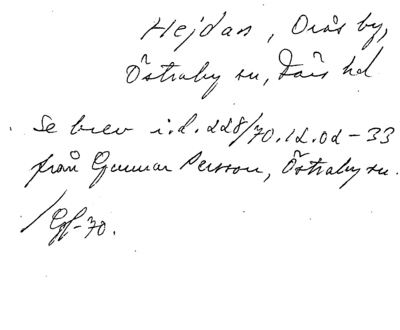 Hejdan, Orås by,
Östraby sn, Färs hd
Se brev i.d. 228/70.12.02-33
från Gunnar Persson, Östraby sn.
/Gf-70.